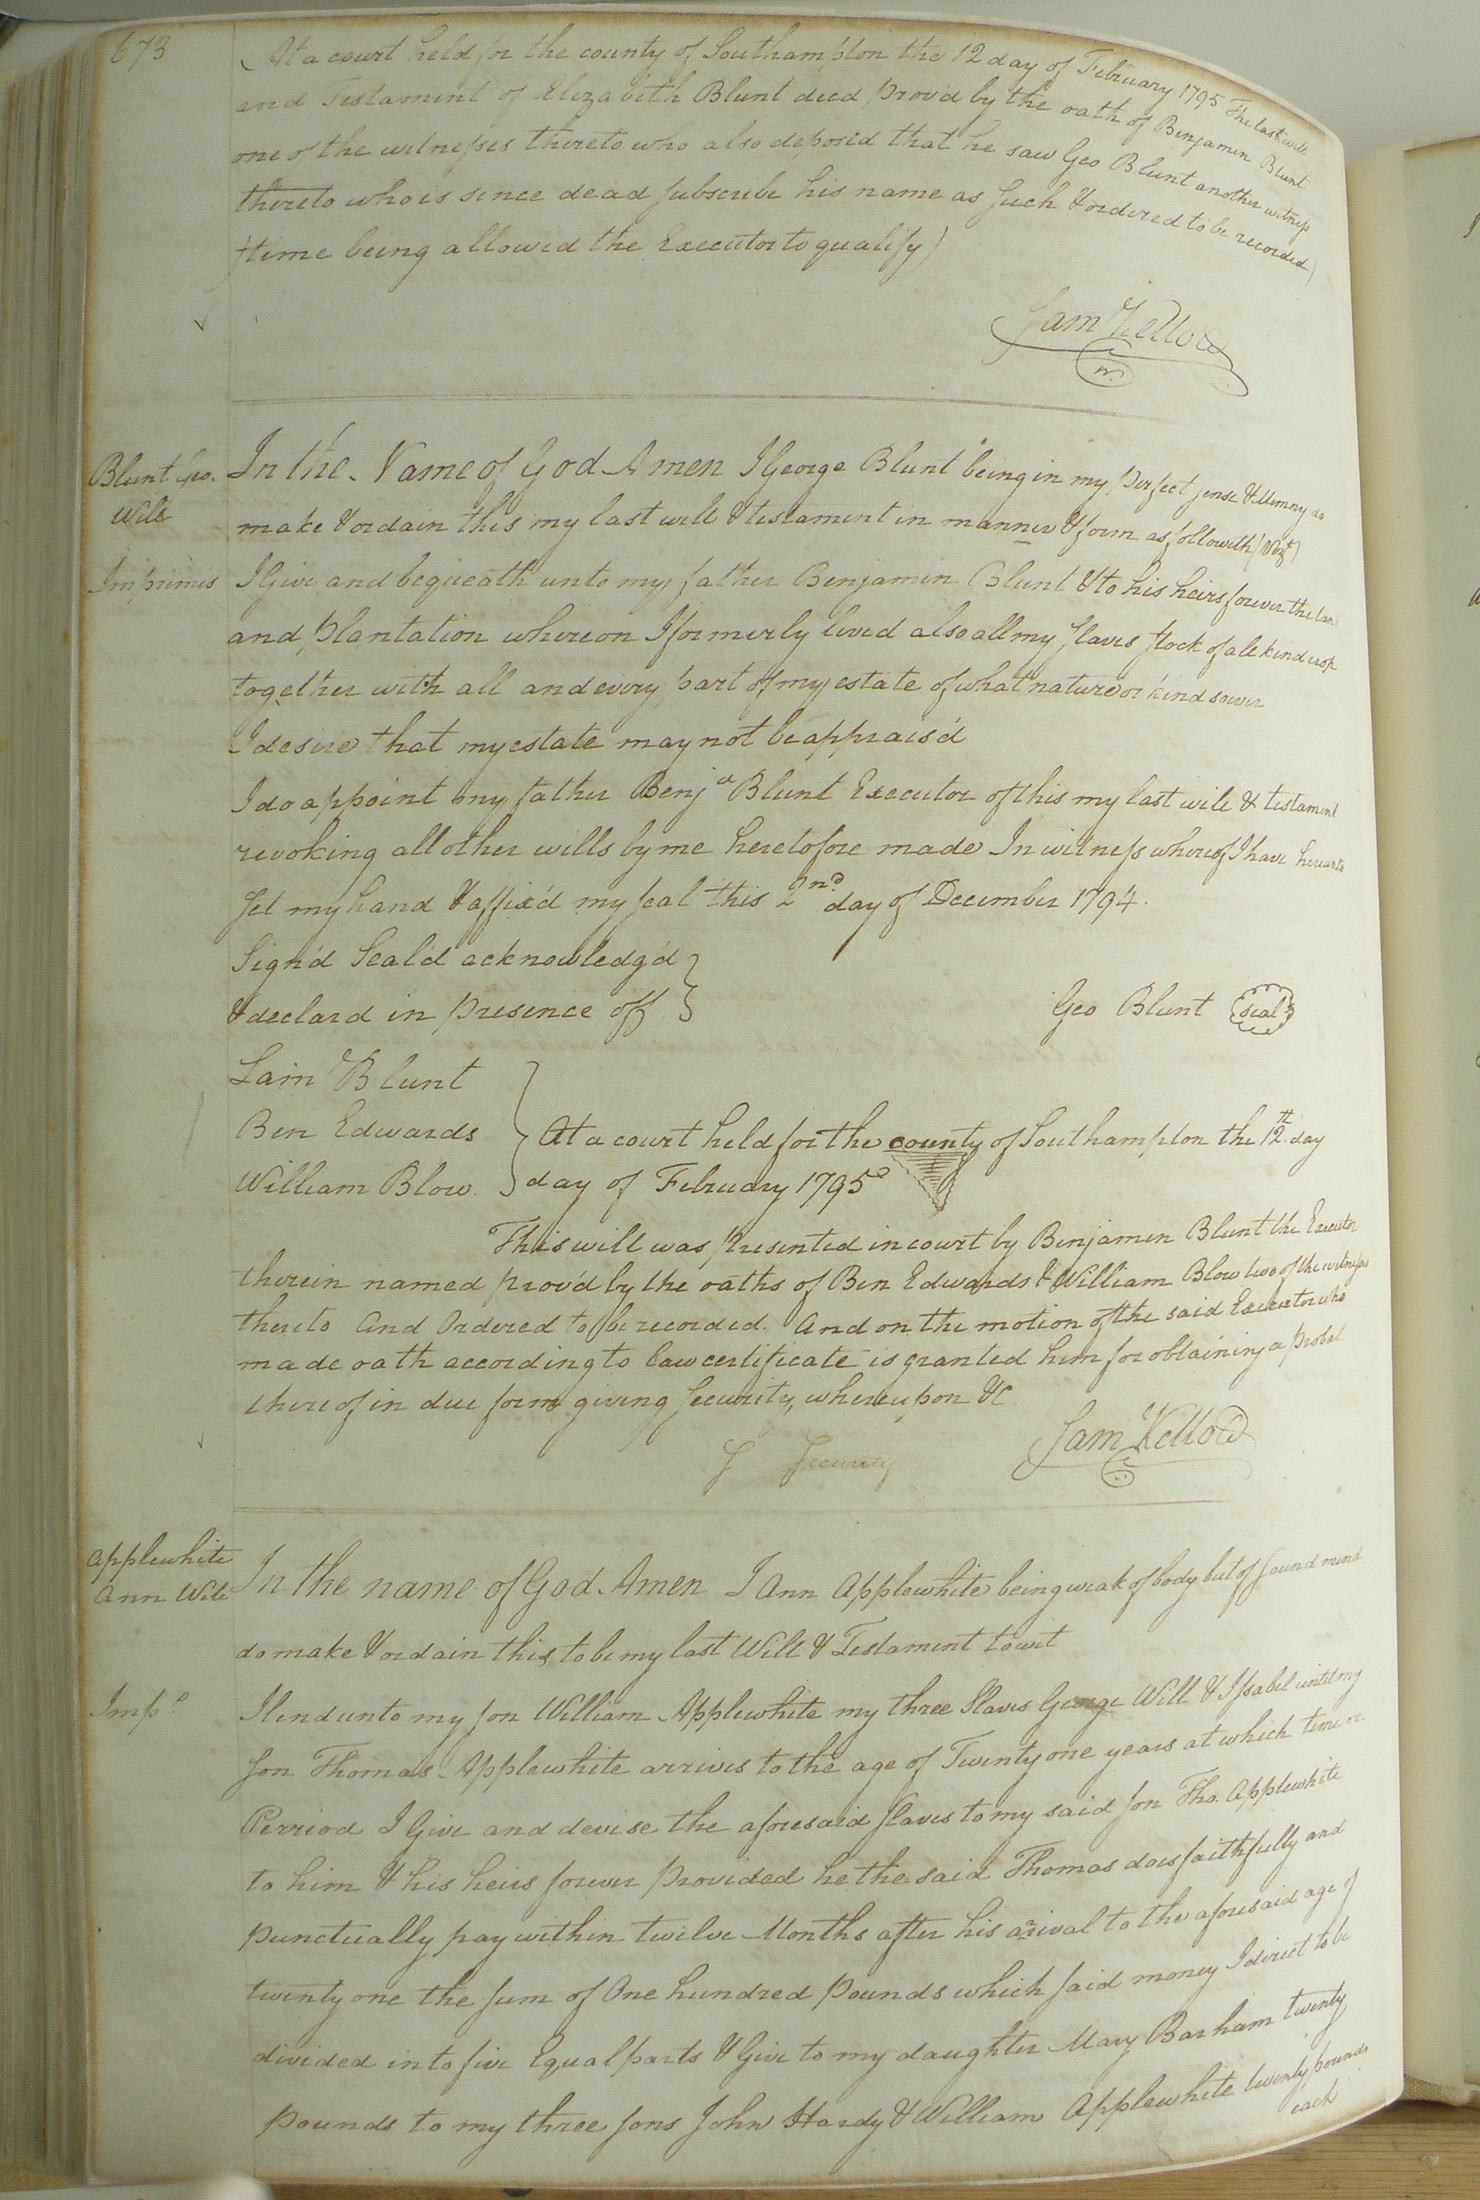 673
At a court held for the county of Southampton the 12 day of February 1795 The last will
and Testament of Elizabeth Blunt decd prov'd by the oath of Benjamin Blunt
one of the witnesses thereto who also deposed that he saw Geo Blunt another witness
thereto who is since dead subscribe his name as such & ordered to be recorded
(time being allowed the Executor to qualify)
Sam Kello
Blunt Geo.
Will
In the Name of God Amen I George Blunt being in my perfect sense & Memory do
make & ordain this my last will & testament in manner & form as followeth (Vizt)
Imprimis
I Give and bequeath unto my father Benjamin Blunt & to his heirs forever the land
and plantation whereon I formerly lived also all my slaves stock of all kind crop
together with all and every part of my estate of what nature or kind soever
I desire that my estate may not be apprais'd
I do appoint my father Benja Blunt Executor of this my last will & testament
revoking all other wills by me heretofore made In witness whereof I have hereunto
set my hand & affix'd my seal this 2nd day of December 1794.
Sign'd Seal'd acknowledg'd
& declard in presence off
Geo Blunt seal
Sam Blunt
Ben Edwards
William Blow
At a court held for the county of Southampton the 12th day
day of February 1795
This will was presented in court by Benjamin Blunt the Executor
therein named prov'd by the oaths of Ben Edwards & William Blow two of the witnesses
thereto and Ordered to be recorded. And on the motion of the said Executor who
made oath according to law certificate is granted him for obtaining a probat
thereof in due form giving security whereupon &c
Security
Sam Kello
Applewhite
Ann Will
In the name of God Amen I Ann Applewhite being weak of body but of sound mind
do make & ordain this to be my last Will & Testament towit
Impo
I lend unto my son William Applewhite my three Slaves George Will & Isabel until my
son Thomas Applewhite arrives to the age of Twenty one years at which time or
Perriod I Give and devise the aforesaid slaves to my said son Tho. Applewhite
to him & his heirs forever provided he the said Thomas does faithfully and
punctually pay within twelve Months after his arival to the aforesaid age of
twenty one the sum of One hundred pounds which said money I direct to be
divided into five Equal parts & Give to my daughter Mary Barham twenty
pounds to my three sons John Hardy & William Applewhite twenty pounds
each